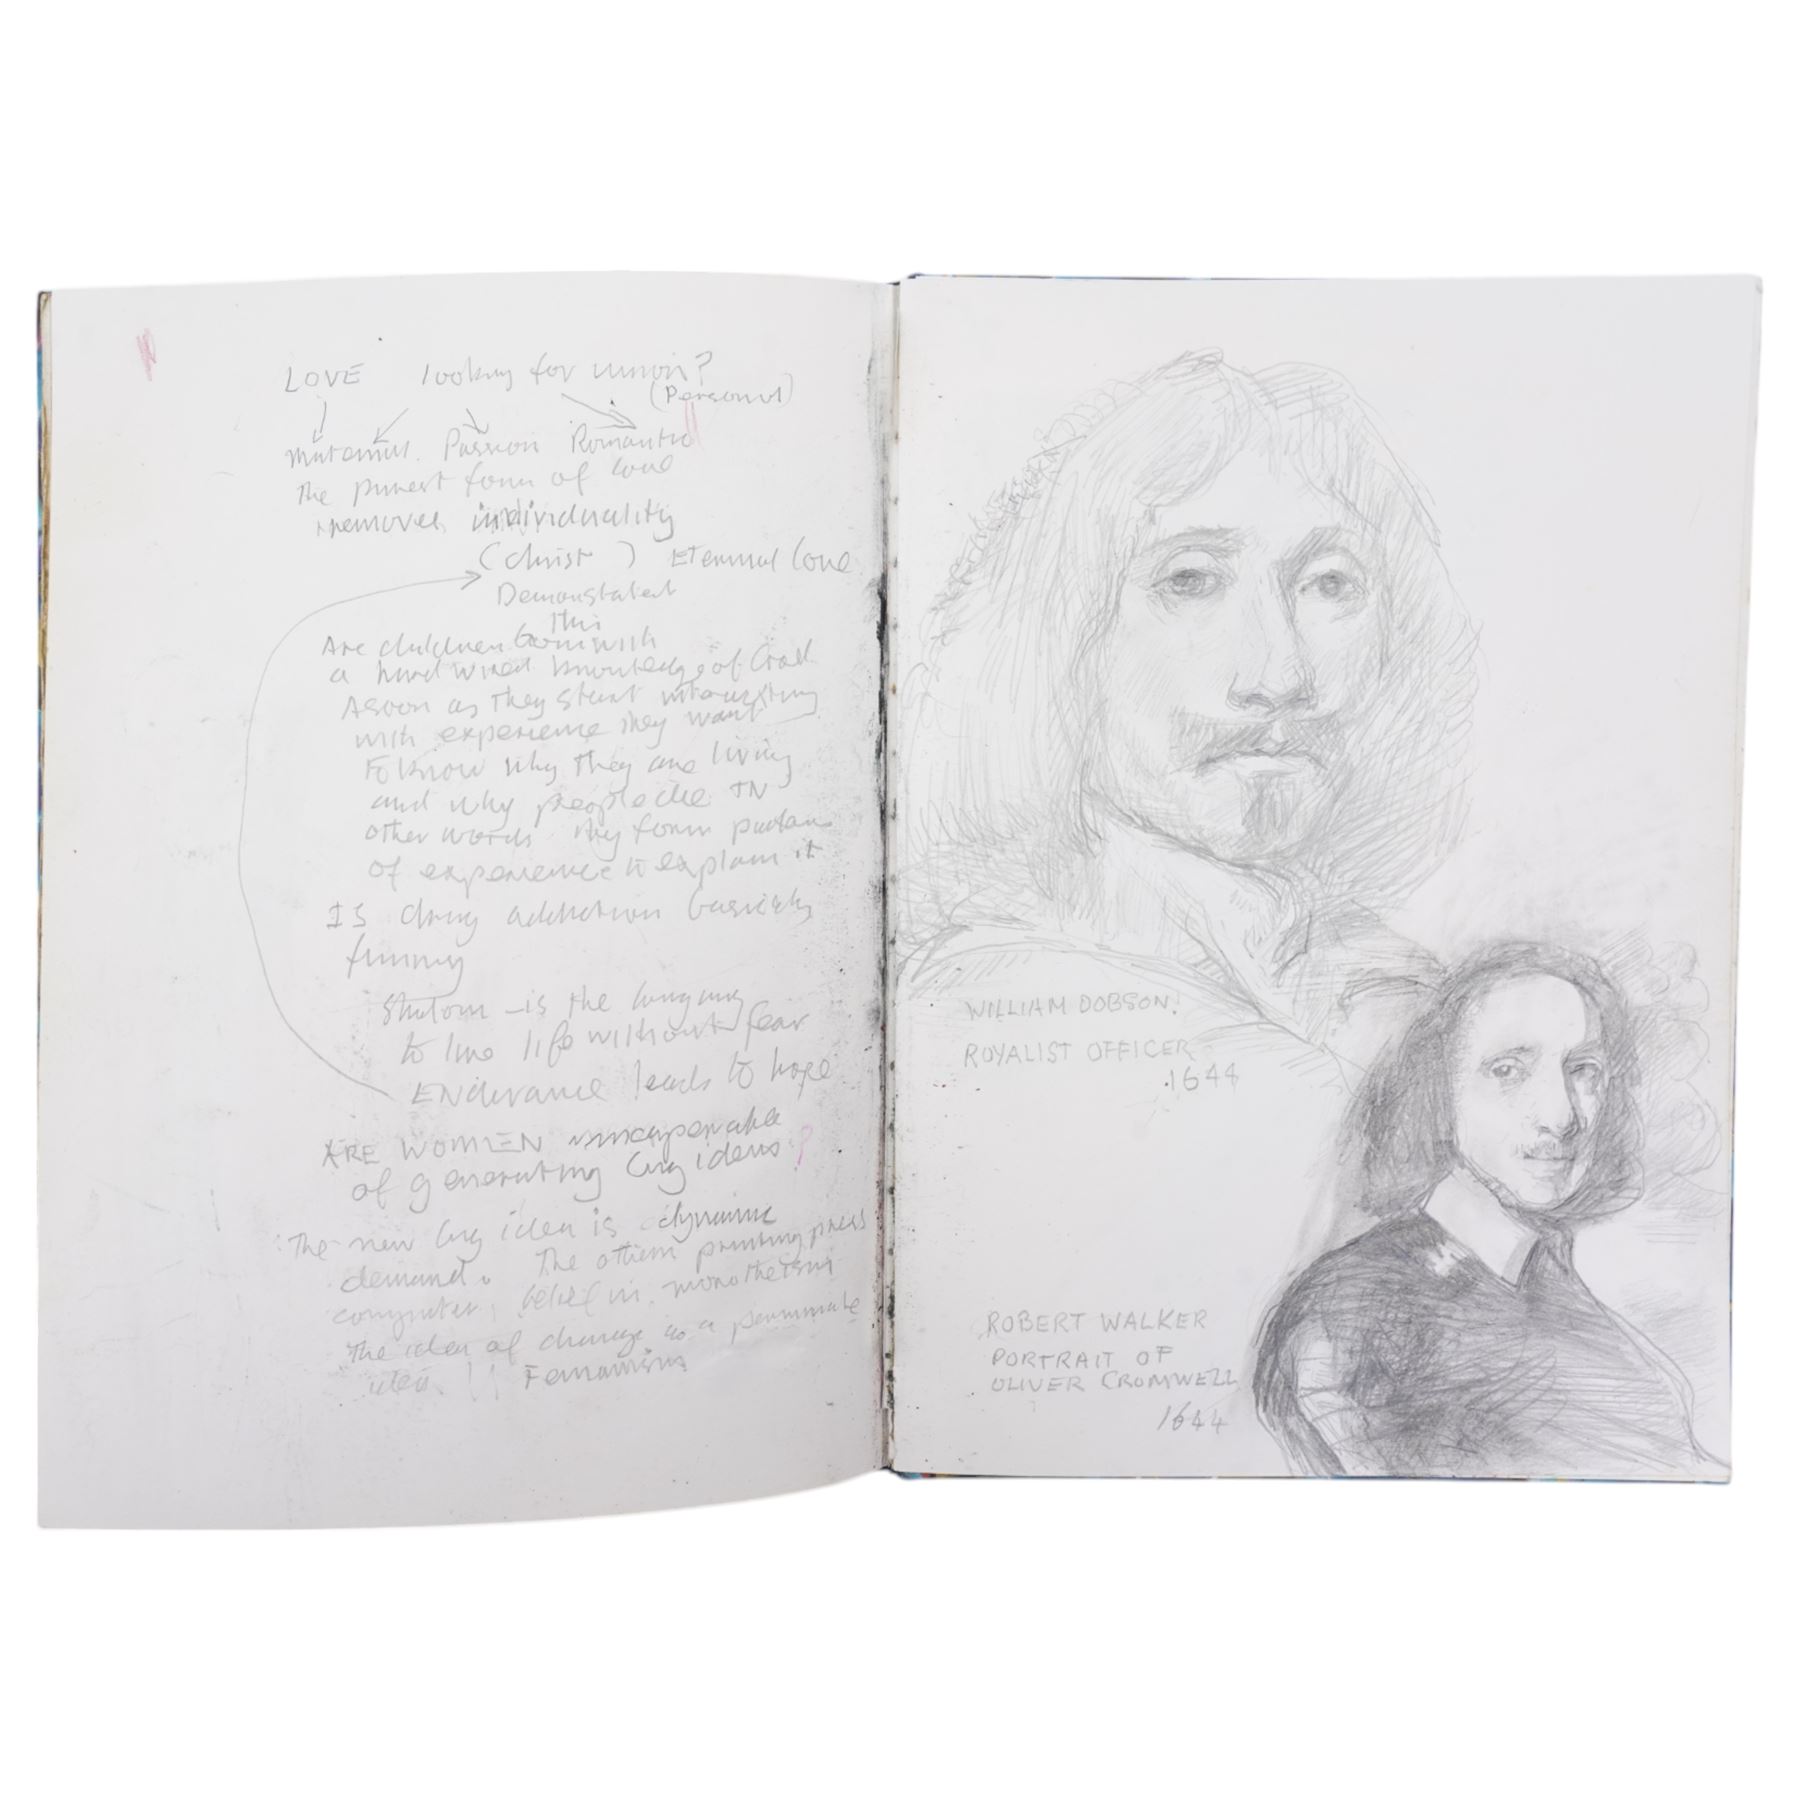 LOVE looking for union?
(Personal)
Maternal. Passion Romantic
the purest form of love
removes individuality
(Christ) Eternal love
Demonstated
this
Are children born with
a hard wired knowledge of God
Asoon as they start interacting
with experience they want
to know why they are living
and why people die IN
other words they form
of experience to explain it
IS drug addiction basicly
funny
Shalom - is the longing
to live life without fear
ENdurance leads to hope
ARE WOMEN
of generating big ideas?
The new big idea is dynamic
demand. The printing press
computer, belief in. monotheism
The idea of change as a
idea. !!
WILLIAM DOBSON.
ROYALIST OFFICER
1644
ROBERT WALKER
PORTRAIT OF
OLIVER CROMWELL
1644